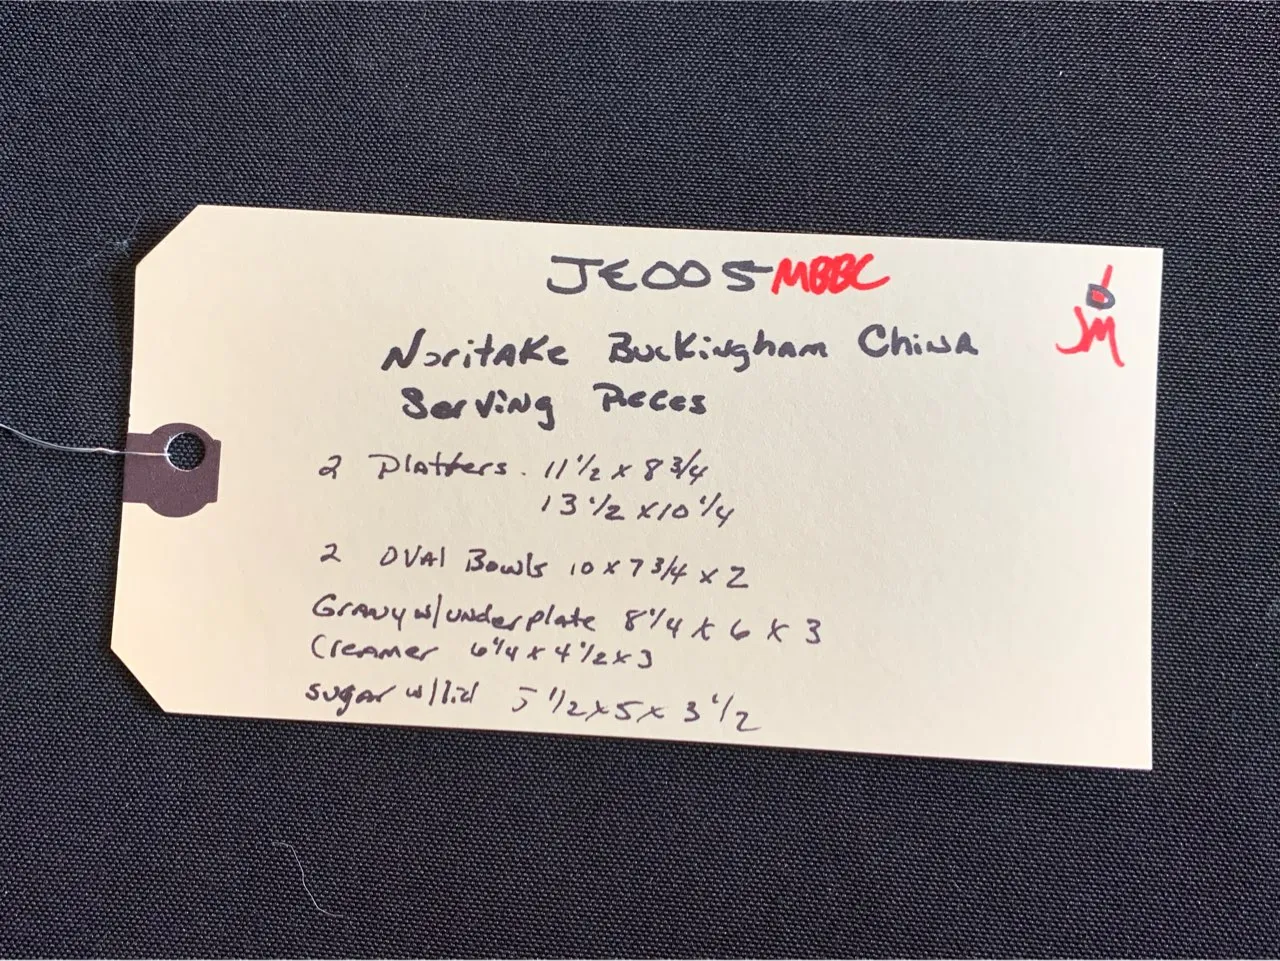 JE005 MBBC
JM
Noritake Buckingham China
Serving Pieces
2 Platters. 11 1/2 x 8 3/4
13 1/2 x 10 1/4
2 OVAl Bowls 10 x 7 3/4 x 2
Gravy w/underplate 8 1/4 x 6 x 3
Creamer 6 1/4 x 4 1/2 x 3
sugar w/lid 5 1/2 x 5 x 3 1/2